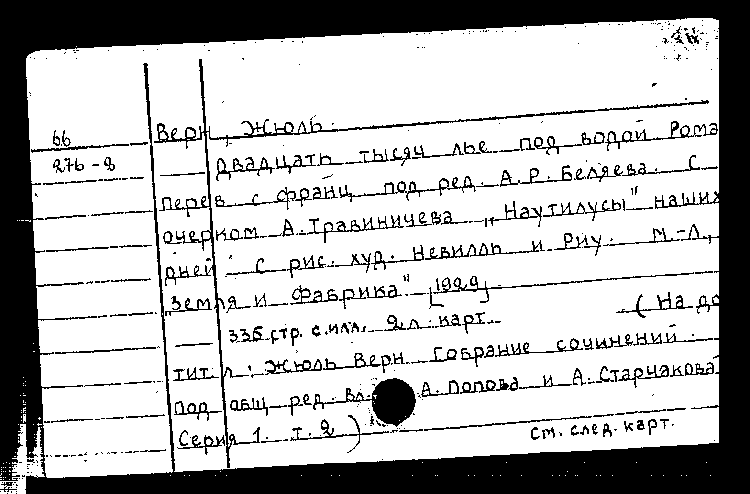 66
276-2
Верн, Жюль.
Двадцать тысяч лье под водой Рома
перев с франц под ред. А.Р. Беляева. С
очерком А. Травиничева „Наутилусы" наших
дней: С рис. худ. Невилль и Риу. М.-Л.,
„Земля и Фабрика" [1929]
335 стр. с илл., 2 л. карт. (На до
тит л: Жюль Верн Собрание сочинений.
Под общ ред. Вл. А. Попова и А. Старчакова
Серия 1. т. 2)
См. след. карт.